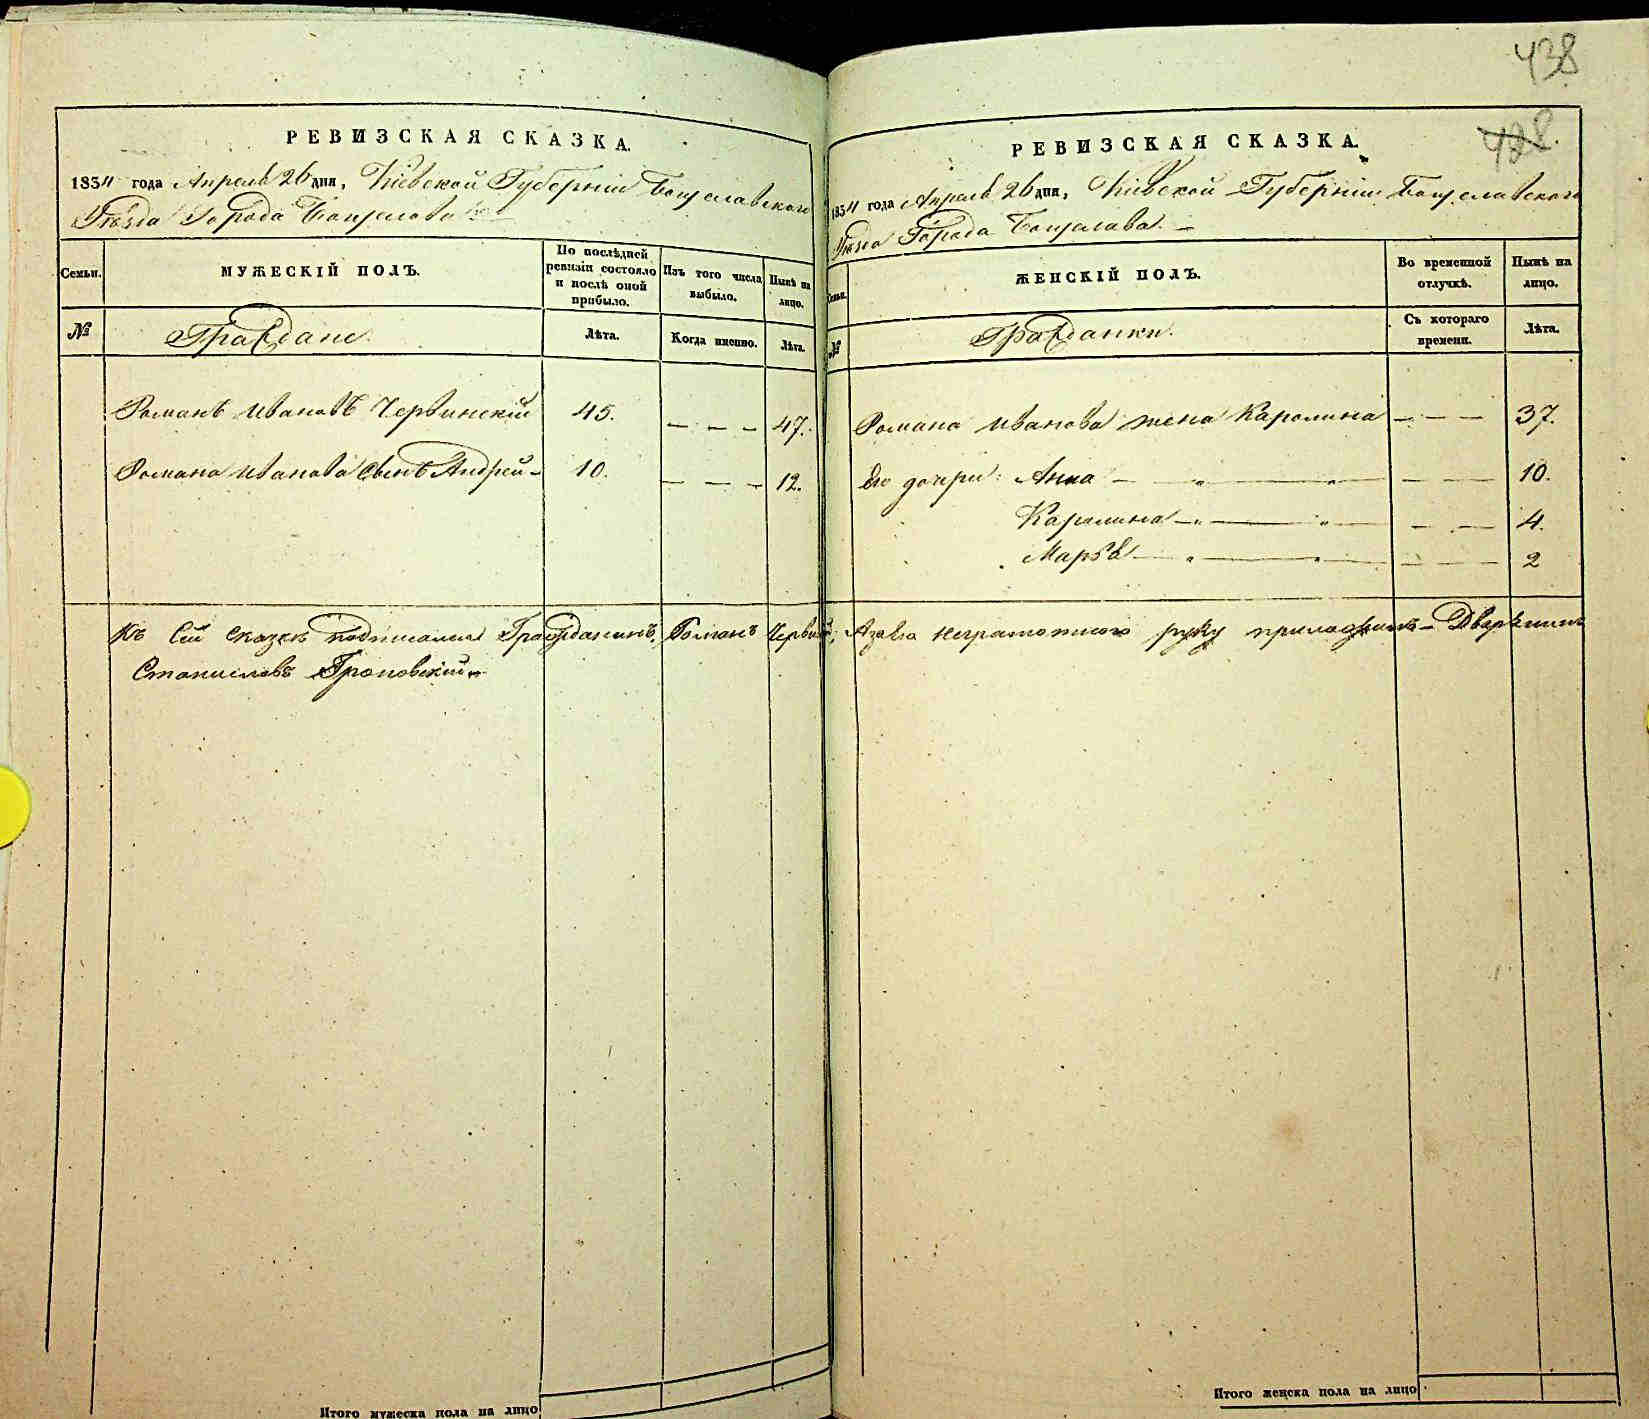 438
РЕВИЗСКАЯ СКАЗКА.
1854 года Апреля 26 дня, Кіевской Губерніи Богуславского
Уѣзда Города Богуслава
Семьи.
МУЖЕСКІЙ ПОЛЪ.
По послѣдней
ревизіи состояло
и послѣ оной
прибыло.
Изъ того числа
выбыло.
Нынѣ на
лицо.
№
Граждане.
Лѣта.
Когда именно.
Лѣта.
Романъ Ивановъ Червинскій 45. — — — 47.
Романа Иванова сынъ Андрей — 10. — — — 12.
Къ сей сказкѣ подписался Гражданинъ Романъ Червинскій,
Станиславъ
Итого мужеска пола на лицо
428.
РЕВИЗСКАЯ СКАЗКА.
1854 года Апреля 26 дня, Кіевской Губерніи Богуславского
Уѣзда Города Богуслава. —
Семьи.
ЖЕНСКІЙ ПОЛЪ.
Во временной
отлучкѣ.
Нынѣ на
лицо.
№
Гражданки.
Съ котораго
времени.
Лѣта.
Романа Иванова жена Каролина — — — 37.
Его дочри: Анна — „ — „ — — — — 10.
Каролина — „ — „ — — — 4.
Марья — „ — „ — — — — 2
А за него неграмотного руку приложилъ — Дворянинъ
Итого женска пола на лицо